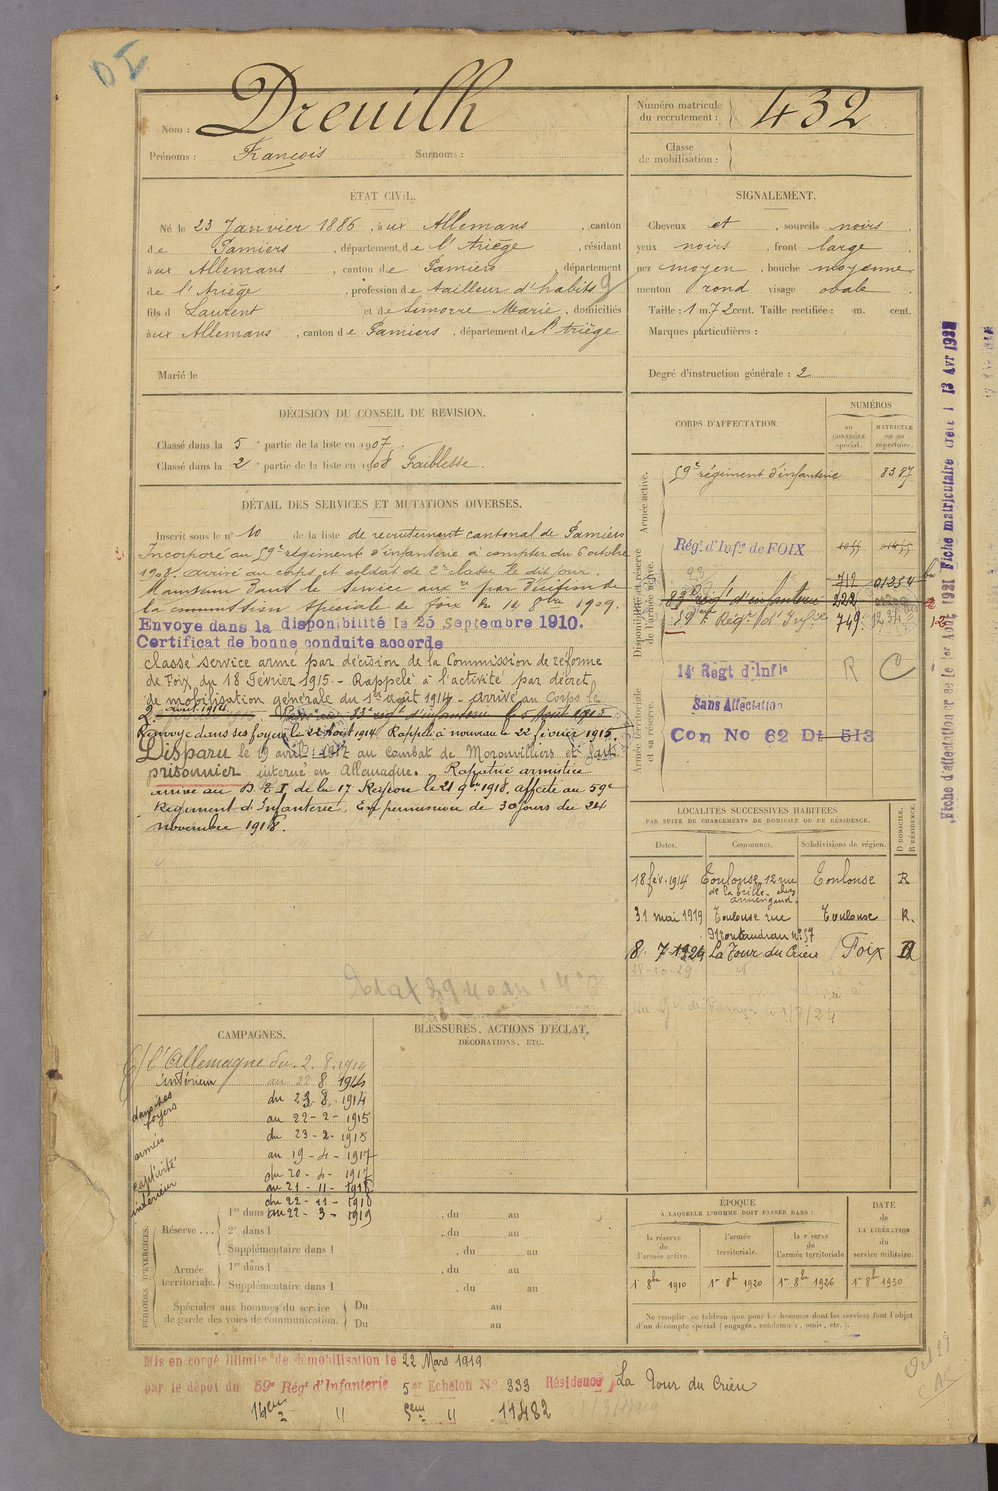 D I
Nom : Dreuilh
Prénoms : François Surnoms :
Numéro matricule du recrutement : 432
Classe de mobilisation :
ÉTAT CIVIL.
Né le 23 Janvier 1886, à ux Allemans, canton
de Pamiers, département de l'Ariège, résidant
à ux Allemans, canton de Pamiers, département
de l'Ariège, profession de tailleur d'habits 9
fils d Laurent et de Simorre Marie, domiciliés
à ux Allemans, canton de Pamiers, département de l'Ariège
Marié le
SIGNALEMENT.
Cheveux et, sourcils noirs.
yeux noirs, front large
nez moyen, bouche moyenne
menton rond visage ovale.
Taille : 1 m. 72 cent. Taille rectifiée : m. cent.
Marques particulières :
Degré d'instruction générale : 2
DÉCISION DU CONSEIL DE REVISION.
Classé dans la 5e partie de la liste en 1907.
Classé dans la 2e partie de la liste en 1908 Faiblesse.
DÉTAIL DES SERVICES ET MUTATIONS DIVERSES.
Inscrit sous le n° 10 de la liste de recrutement cantonal de Pamiers
Incorporé au 59e régiment d'infanterie à compter du 6 octobre
1908. arrivé au corps et soldat de 2e classe le dit jour.
Maintenu dans le service auxre par décision de
la commission spéciale de foix du 14 8bre 1909.
Envoye dans la disponibilité le 25 Septembre 1910.
Certificat de bonne conduite accorde
classé service armé par décision de la Commission de réforme
de Foix du 18 Février 1915. - Rappelé à l'activité par décret
de mobilisation générale du 1er août 1914 - arrivé au Corps le
2 août 1914 Passé au 83e régt d'infanterie le 5 Août 1915
Renvoyé dans ses foyers le 22 Août 1914. Rappelé à nouveau le 22 février 1915.
Disparu le 19 avril 1917 au combat de Moronvilliers et fait
prisonnier interné en Allemagne. Rapatrié armistice
arrivé au D. E. I. de la 17 Région le 21 9bre 1918. affecté au 59e
Régiment d'Infanterie. En permission de 30 jours du 24
novembre 1918.
CORPS D'AFFECTATION.
NUMÉROS
au CONTRÔLE spécial.
MATRICULE ou au répertoire.
Armée active.
59e régiment d'infanterie 8387
Disponibilité et réserve de l'armée active.
Régt d'Infie de FOIX
83e régt d'infanterie 222
59e Régt d'Infie 749
Armée territoriale et sa réserve.
14e Regt d'Infie R C
Sans Affectation
Con No 62 Dt 513
Fiche d'affectation créée le 1er Août 1921 Fiche matriculaire
LOCALITÉS SUCCESSIVES HABITÉES
PAR SUITE DE CHANGEMENTS DE DOMICILE OU DE RÉSIDENCE.
Dates. Communes. Subdivisions de région. D DOMICILE. R RÉSIDENCE.
18 fév. 1914 Toulouse 12 rue Toulouse R
31 mai 1919 Toulouse rue Toulouse R.
Montaudran n° 57
8. 7-1924 La Tour du Crieu Foix R
28-10-29
CAMPAGNES.
C/ l'Allemagne du 2. 8. 1914
intérieur au 22 8 1914
dans ses foyers du 23. 8. 1914
au 22-2-1915
armées du 23-2-1915
au 19-4-1917
captivité du 20-4-1917
au 21-11-1918
intérieur du 22-11-1918
au 22-3-1919
BLESSURES, ACTIONS D'ÉCLAT,
DÉCORATIONS, ETC.
PÉRIODES D'EXERCICES.
Réserve ... 1re dans l , du au
2e dans l , du au
Supplémentaire dans l , du au
Armée territoriale. 1re dans l , du au
Supplémentaire dans l , du au
Spéciales aux hommes du service de garde des voies de communication. Du au
Du au
ÉPOQUE
A LAQUELLE L'HOMME DOIT PASSER DANS :
la réserve de l'armée active. l'armée territoriale. la réserve de l'armée territoriale
DATE de LA LIBÉRATION du service militaire.
1er 8bre 1910 1er 8bre 1920 1er 8bre 1926 1er 8bre 1930
No remplir ce tableau que pour les hommes dont les services font l'objet
d'un décompte spécial (engagés, condamnés, omis, etc.).
Mis en congé illimité de démobilisation le 22 Mars 1919
par le dépôt du 59e Régt d'Infanterie 5e Echelon No 333 Résidence La Tour du Crieu
14em " 5em " 11482